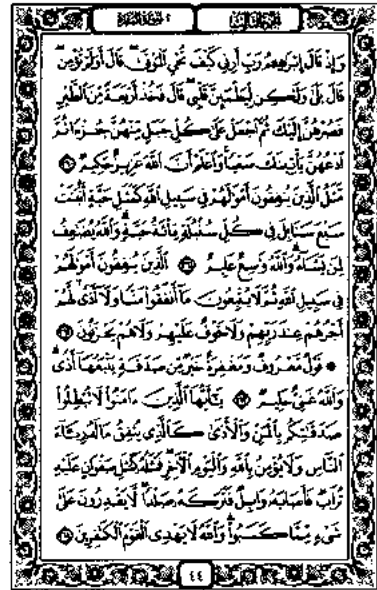 وَإِذْ قَالَ إِبْرَاهِيمُ رَبِّ أَرِنِي كَيْفَ تُحْيِ الْمَوْتَىٰ قَالَ أَوَلَمْ تُؤْمِن
قَالَ بَلَىٰ وَلَٰكِن لِّيَطْمَئِنَّ قَلْبِي قَالَ فَخُذْ أَرْبَعَةً مِّنَ الطَّيْرِ
فَصُرْهُنَّ إِلَيْكَ ثُمَّ اجْعَلْ عَلَىٰ كُلِّ جَبَلٍ مِّنْهُنَّ جُزْءًا ثُمَّ
ادْعُهُنَّ يَأْتِينَكَ سَعْيًا وَاعْلَمْ أَنَّ اللَّهَ عَزِيزٌ حَكِيمٌ
مَّثَلُ الَّذِينَ يُنفِقُونَ أَمْوَالَهُمْ فِي سَبِيلِ اللَّهِ كَمَثَلِ حَبَّةٍ أَنبَتَتْ
سَبْعَ سَنَابِلَ فِي كُلِّ سُنبُلَةٍ مِّائَةُ حَبَّةٍ وَاللَّهُ يُضَاعِفُ
لِمَن يَشَاءُ وَاللَّهُ وَاسِعٌ عَلِيمٌ الَّذِينَ يُنفِقُونَ أَمْوَالَهُمْ
فِي سَبِيلِ اللَّهِ ثُمَّ لَا يُتْبِعُونَ مَا أَنفَقُوا مَنًّا وَلَا أَذًى لَّهُمْ
أَجْرُهُمْ عِندَ رَبِّهِمْ وَلَا خَوْفٌ عَلَيْهِمْ وَلَا هُمْ يَحْزَنُونَ
قَوْلٌ مَّعْرُوفٌ وَمَغْفِرَةٌ خَيْرٌ مِّن صَدَقَةٍ يَتْبَعُهَا أَذًى
وَاللَّهُ غَنِيٌّ حَلِيمٌ يَا أَيُّهَا الَّذِينَ آمَنُوا لَا تُبْطِلُوا
صَدَقَاتِكُم بِالْمَنِّ وَالْأَذَىٰ كَالَّذِي يُنفِقُ مَالَهُ رِئَاءَ
النَّاسِ وَلَا يُؤْمِنُ بِاللَّهِ وَالْيَوْمِ الْآخِرِ فَمَثَلُهُ كَمَثَلِ صَفْوَانٍ عَلَيْهِ
تُرَابٌ فَأَصَابَهُ وَابِلٌ فَتَرَكَهُ صَلْدًا لَّا يَقْدِرُونَ عَلَىٰ
شَيْءٍ مِّمَّا كَسَبُوا وَاللَّهُ لَا يَهْدِي الْقَوْمَ الْكَافِرِينَ
٤٤